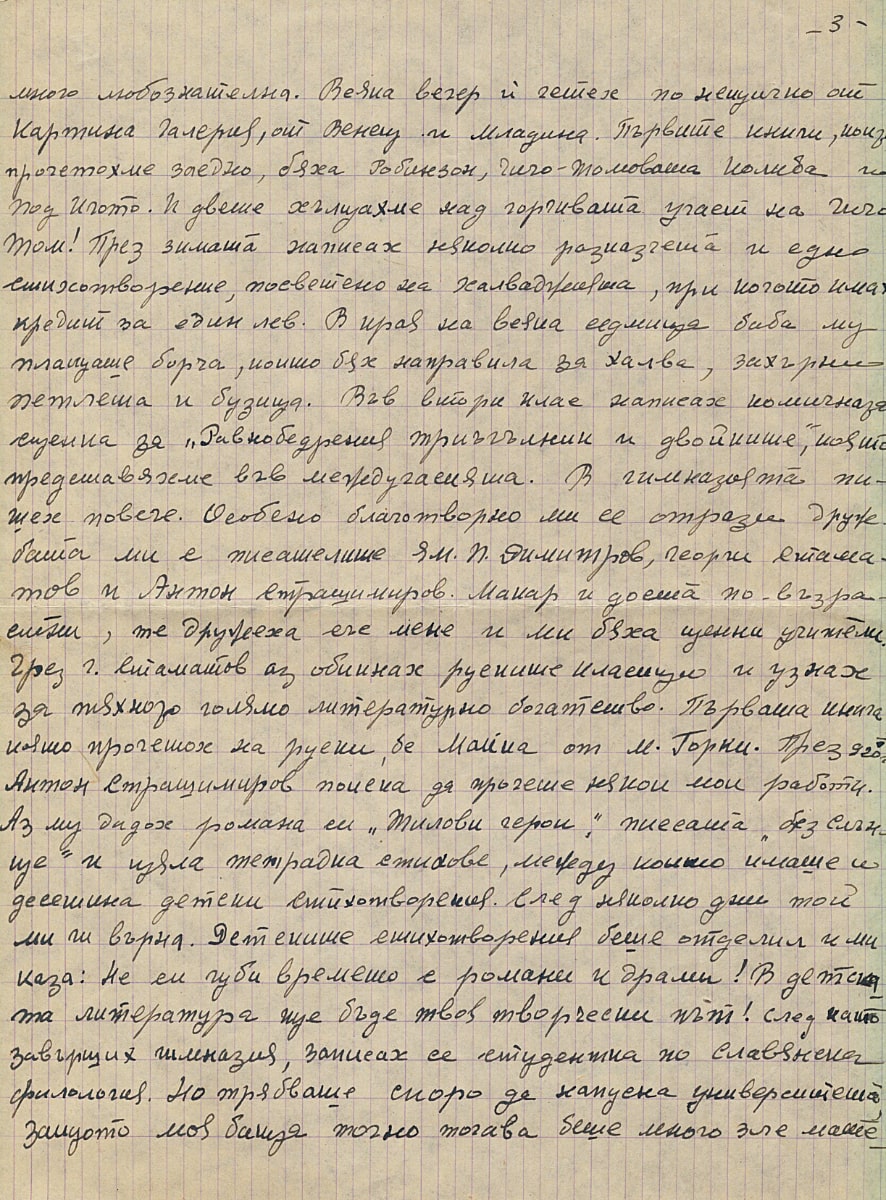 – 3 –
много любознателна. Всяка вечер ѝ четех по нещичко от
Картина Галерия, от Венец и Младина. Първите книги, които
прочетохме заедно, бяха Робинзон, Чичо-Томовата колиба и
Под Игото. И двете хълцахме над горчивата участ на Чичо
Том! През зимата написах няколко разказчета и едно
стихотворение, посветено на халваджията, при когото имах
кредит за един лев. В края на всяка седмица баба му
плащаше борча, който бях направила за халва, захърни
петлета и бузица. Във втори клас написах комична
сценка за „Равнобедрения триъгълник и двойките", която
представяхме във междучасията. В гимназията пи-
шех повече. Особено благотворно ми се отрази друж-
бата ми с писателите Ем. П. Димитров, Георги Стама-
тов и Антон Страшимиров. Макар и доста по-възра-
стни, те дружеха със мене и ми бяха ценни учители.
Чрез г. Стаматов аз обикнах руските класици и узнах
за тяхното голямо литературно богатство. Първата книга
която прочетох на руски, бе Майка от М. Горки. През
Антон Страшимиров поиска да прочете някои мои работи.
Аз му дадох романа си „Тилови герои", пиесата „без слън-
це" и цяла тетрадка стихове, между които имаше и
десетина детски стихотворения. След няколко дни той
ми ги върна. Детските стихотворения беше отделил и ми
каза: Не си губи времето с романи и драми! В детска
та литература ще бъде твоя творчески път! След като
завърших гимназия, записах се студентка по Славянска
филология. Но трябваше скоро да напусна университета,
защото моя баща точно тогава беше много зле мате